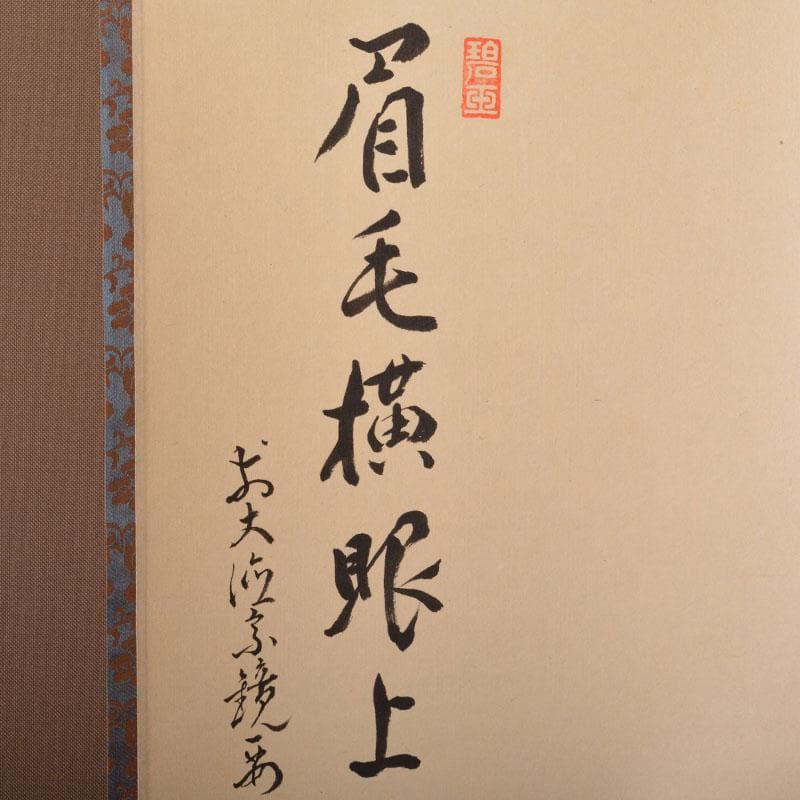 碧玉
眉毛横眼上
前大徳宗鏡書